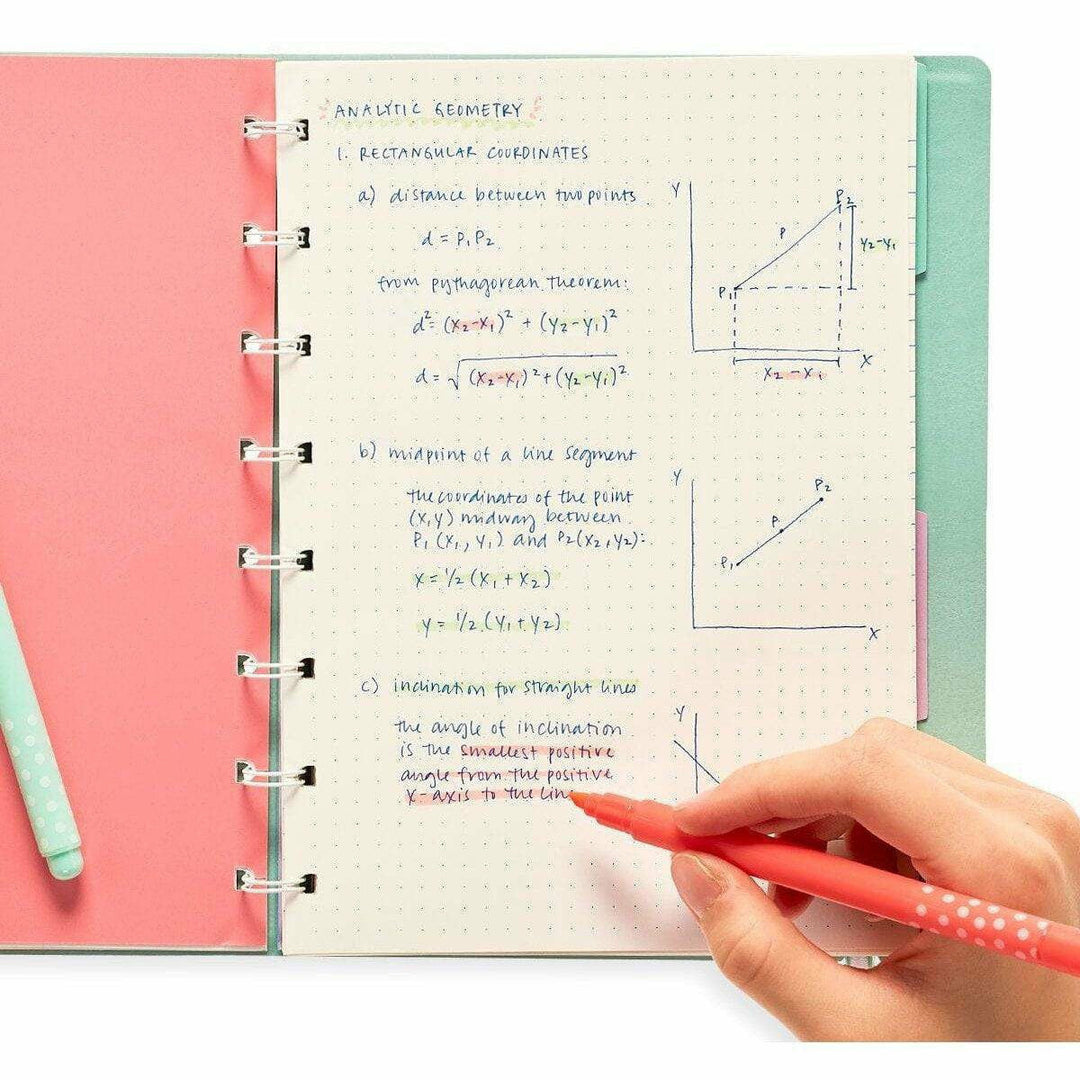 ANALYTIC GEOMETRY
1. RECTANGULAR COORDINATES
a) distance between two points
d = P₁P₂
from pythagorean theorem:
d² = (x₂-x₁)² + (y₂-y₁)²
d = √(x₂-x₁)² + (y₂-y₁)²
Y
P₂
P
y₂-y₁
P₁
X
x₂-x₁
b) midpoint of a line segment
the coordinates of the point
(x,y) midway between
P₁ (x₁, y₁) and P₂(x₂, y₂):
x = 1/2 (x₁ + x₂)
y = 1/2 (y₁ + y₂)
Y
P₂
P
P₁
X
c) inclination for straight lines
the angle of inclination
is the smallest positive
angle from the positive
x-axis to the line
Y